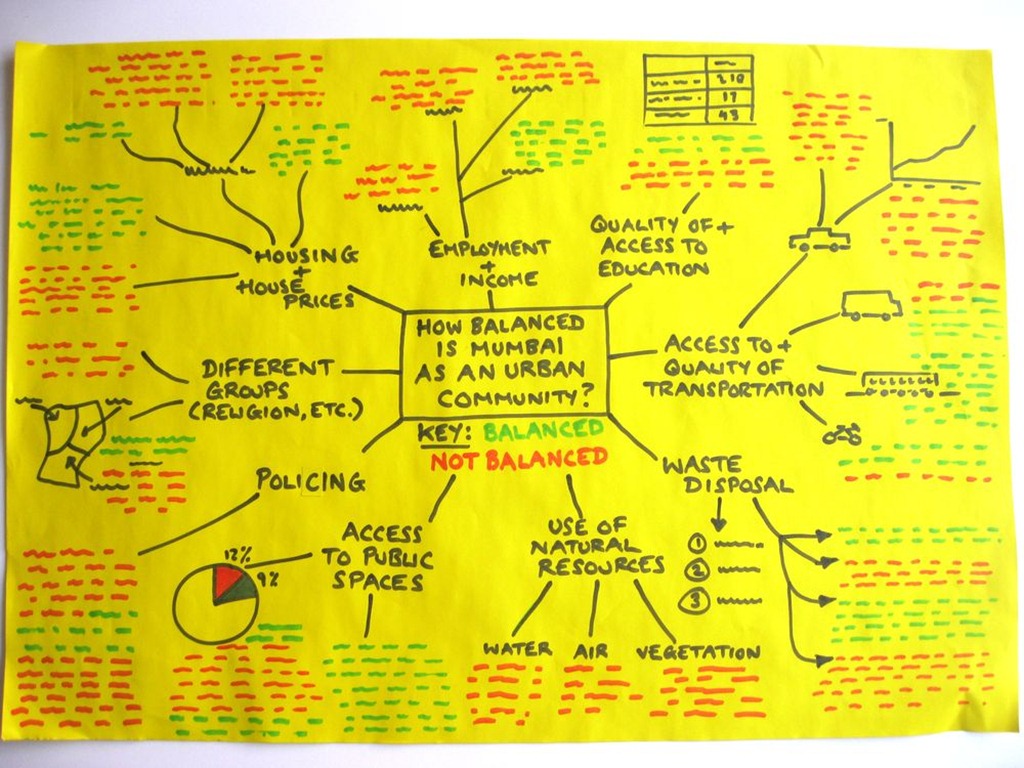 218
17
43
HOUSING
+
HOUSE
PRICES
EMPLOYMENT
+
INCOME
QUALITY OF +
ACCESS TO
EDUCATION
HOW BALANCED
IS MUMBAI
AS AN URBAN
COMMUNITY?
KEY: BALANCED
NOT BALANCED
DIFFERENT
GROUPS
(RELIGION, ETC.)
ACCESS TO +
QUALITY OF
TRANSPORTATION
POLICING
WASTE
DISPOSAL
1
2
3
ACCESS
TO PUBLIC
SPACES
12%
9%
USE OF
NATURAL
RESOURCES
WATER AIR VEGETATION